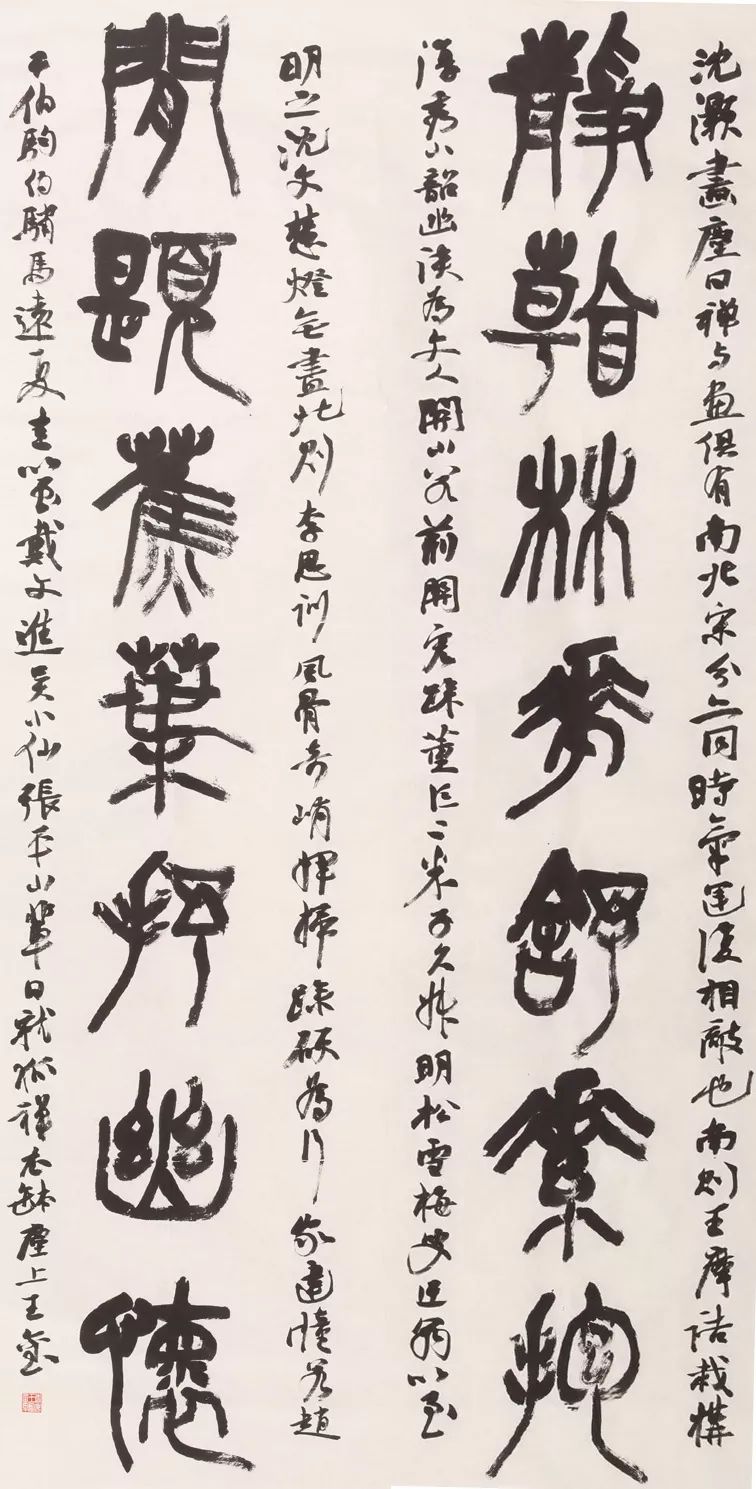 沈灝畫麈曰禪与畫俱有南北宗分亦同時氣運復相敵也南則王摩詰裁構
靜觀林華舒素抱
淳秀出韶幽淡為文人開山若荊關宏璪董巨二米子久叔明松雪梅叟迂翁以至
明之沈文慧燈無盡北則李思訓風骨奇峭揮掃躁硬為行家建幢若趙
閒題蕉葉抒幽懷
干伯駒伯驌馬遠夏圭以至戴文進吳小仙張平山輩日就狐禪衣缽塵土王